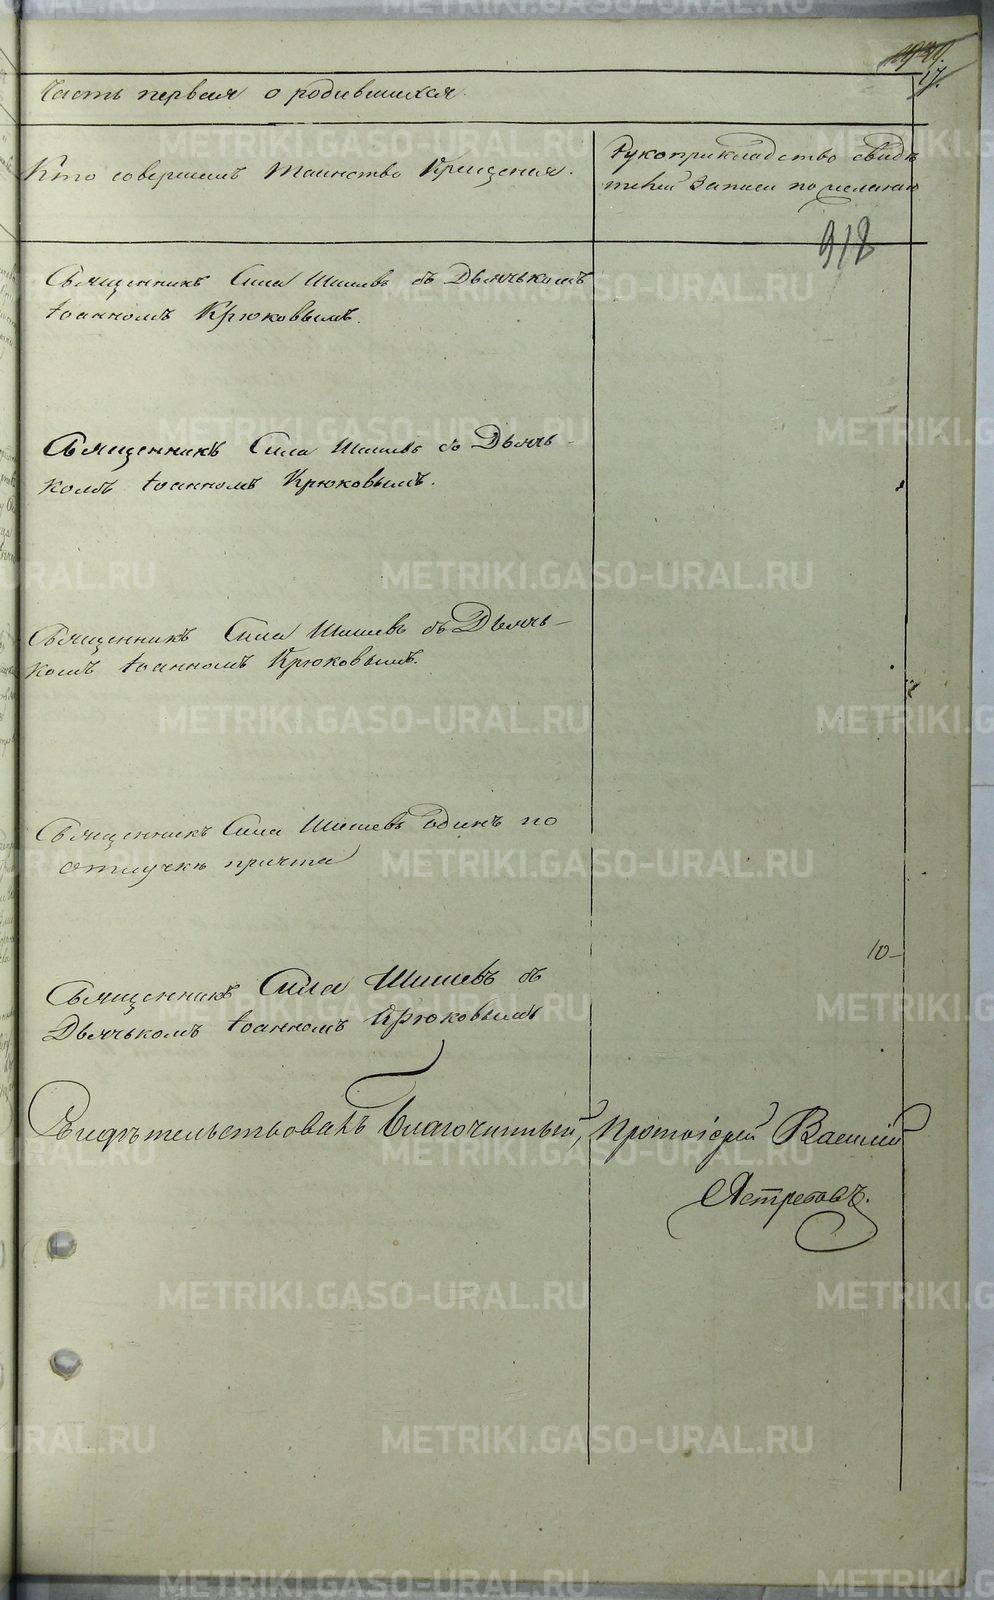 17.
Часть первая о родившихся.
Кто совершалъ таинство Крещения.
Рукоприкладство свидѣ
телей записи по желанию
918
Священникъ Сила Шишевъ съ Дьячькомъ
Іоанномъ Крюковымъ.
Священникъ Сила Шишевъ съ Дьячь-
комъ Іоанномъ Крюковымъ.
Священникъ Сила Шишевъ съ Дьячь-
комъ Іоанномъ Крюковымъ.
Священникъ Сила Шишевъ одинъ по
отлучкѣ причта
10-
Священникъ Сила Шишевъ съ
Дьячькомъ Іоанномъ Крюковымъ
Свидѣтельствовалъ Благочинный, Протоіерей Василій
Ястребовъ.
METRIKI.GASO-URAL.RU